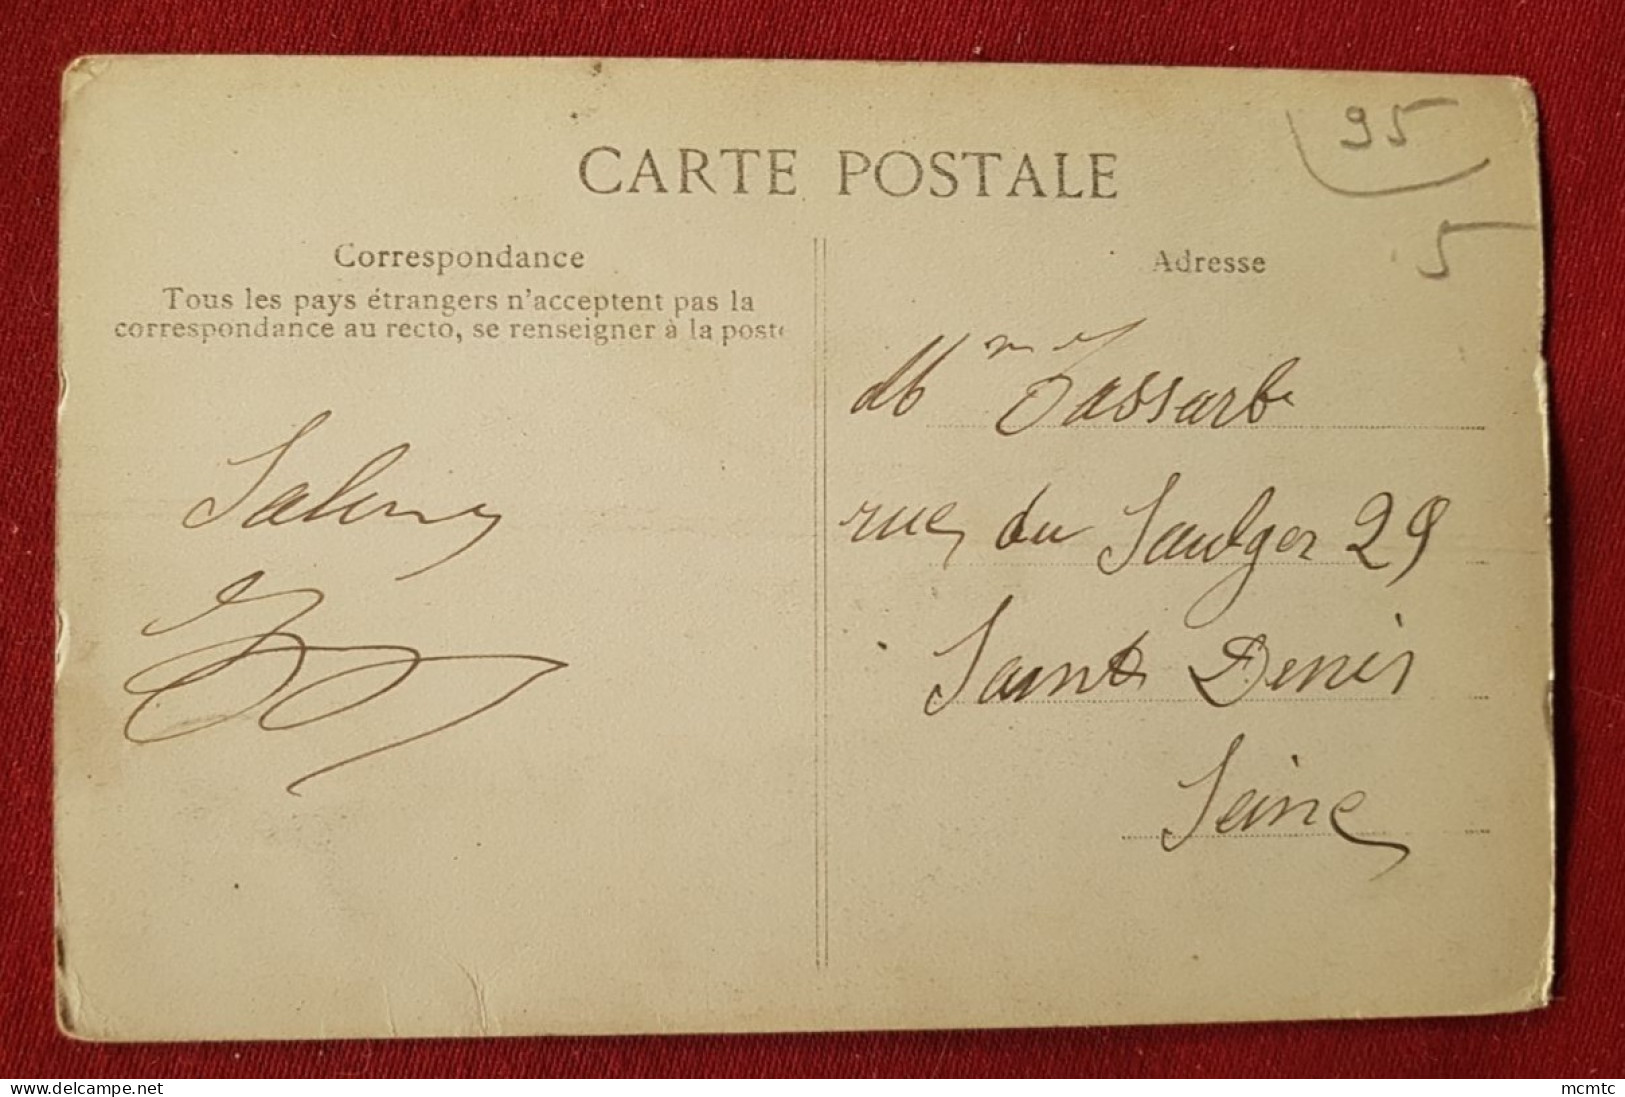 95
CARTE POSTALE
5
Correspondance
Tous les pays étrangers n'acceptent pas la
correspondance au recto, se renseigner à la poste
Adresse
Mme
rue du Saulger 29
Saint Denis
Seine
www.delcampe.net
mcmtc